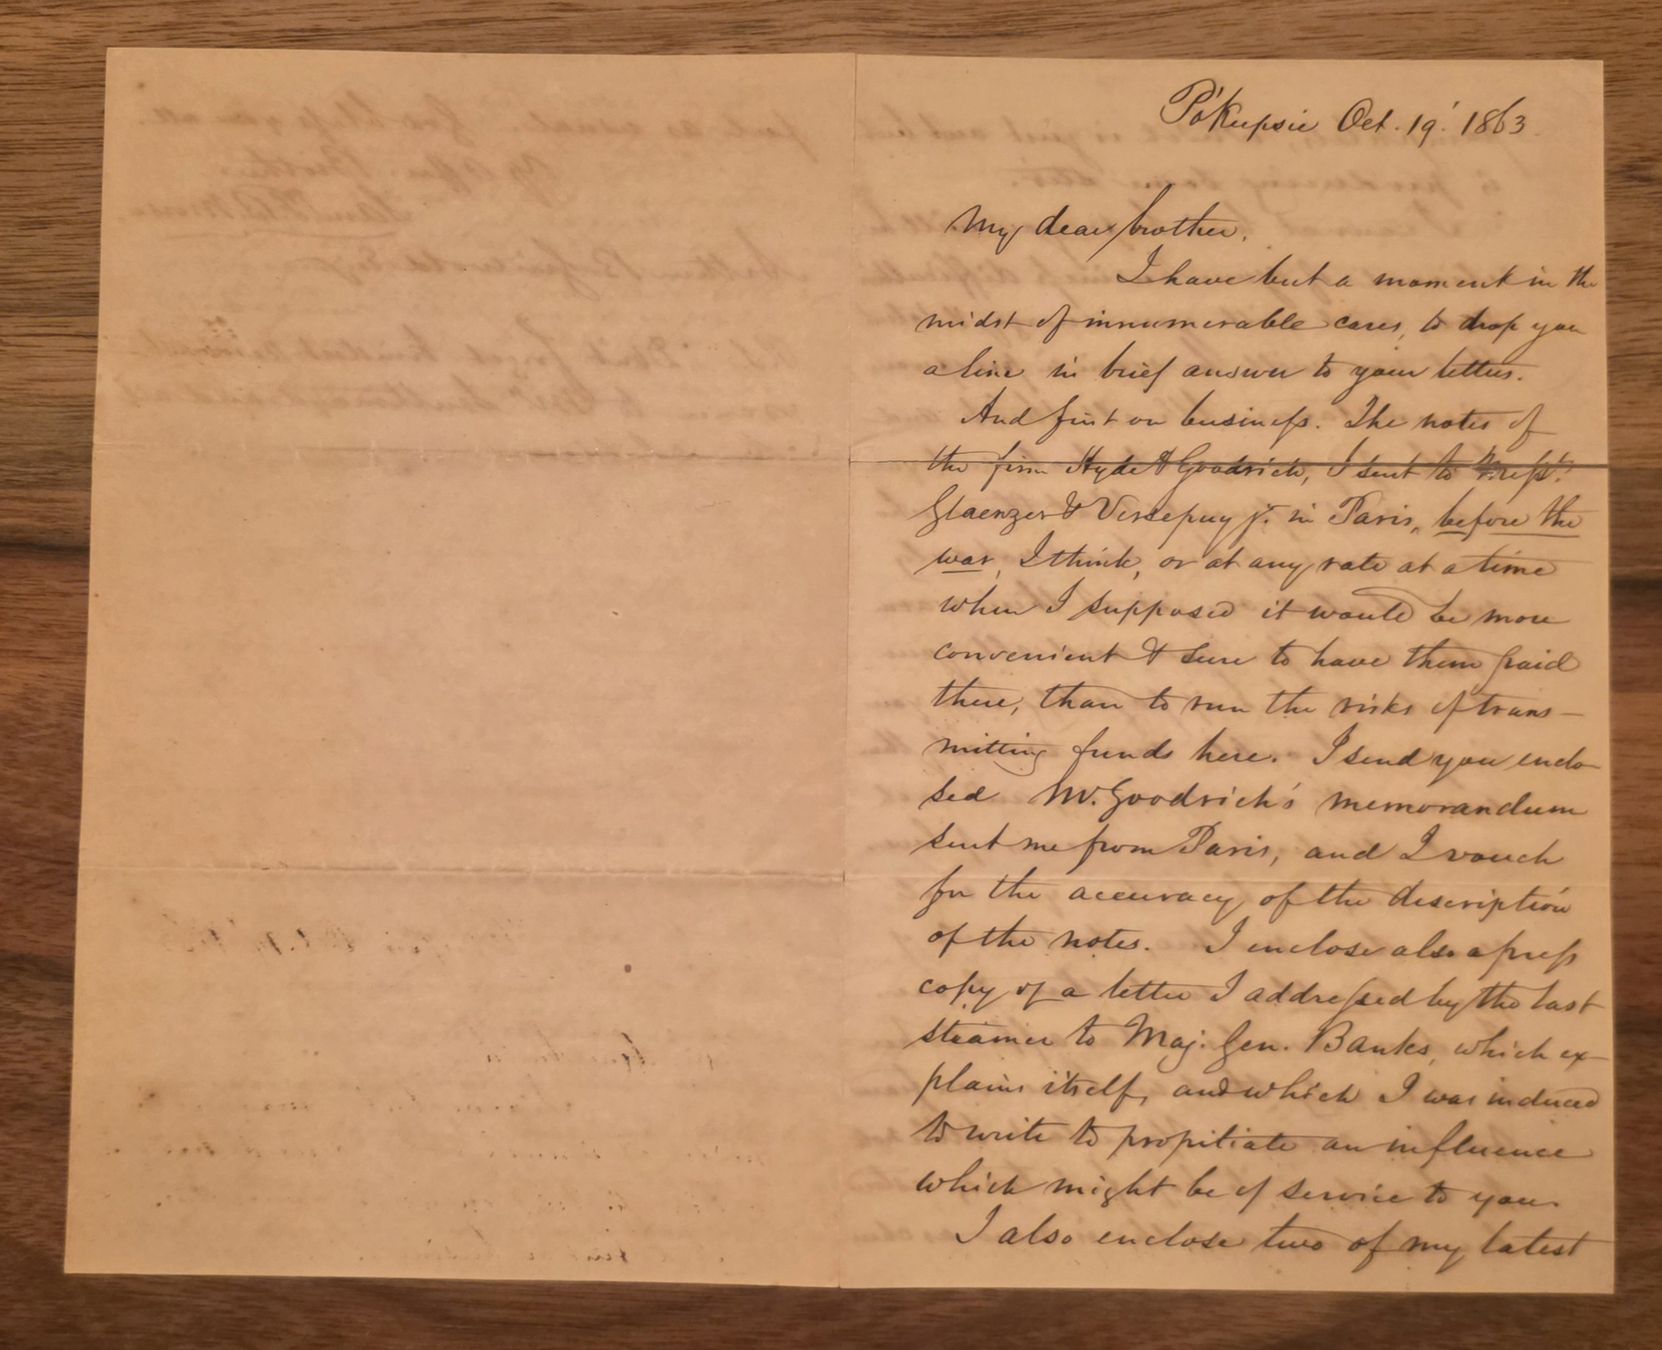 Po'Keepsie Oct. 19. 1863.
My dear brother,
I have but a moment in the
midst of innumerable cares, to drop you
a line in brief answer to your letters.
And first on business. The notes of
the firm Hyde & Goodrich, I sent to Messrs.
Glaenzer & Versepuy Jr. in Paris, before the
war, I think, or at any rate at a time
when I supposed it would be more
convenient & sure to have them paid
there, than to run the risks of trans-
mitting funds here. I send you enclo-
sed Mr. Goodrich's memorandum
sent me from Paris, and I vouch
for the accuracy of the description
of the notes. I enclose also a press
copy of a letter I addressed by the last
steamer to Maj. Gen. Banks, which ex-
plains itself, and which I was induced
to write to propitiate an influence
which might be of service to you.
I also enclose two of my latest